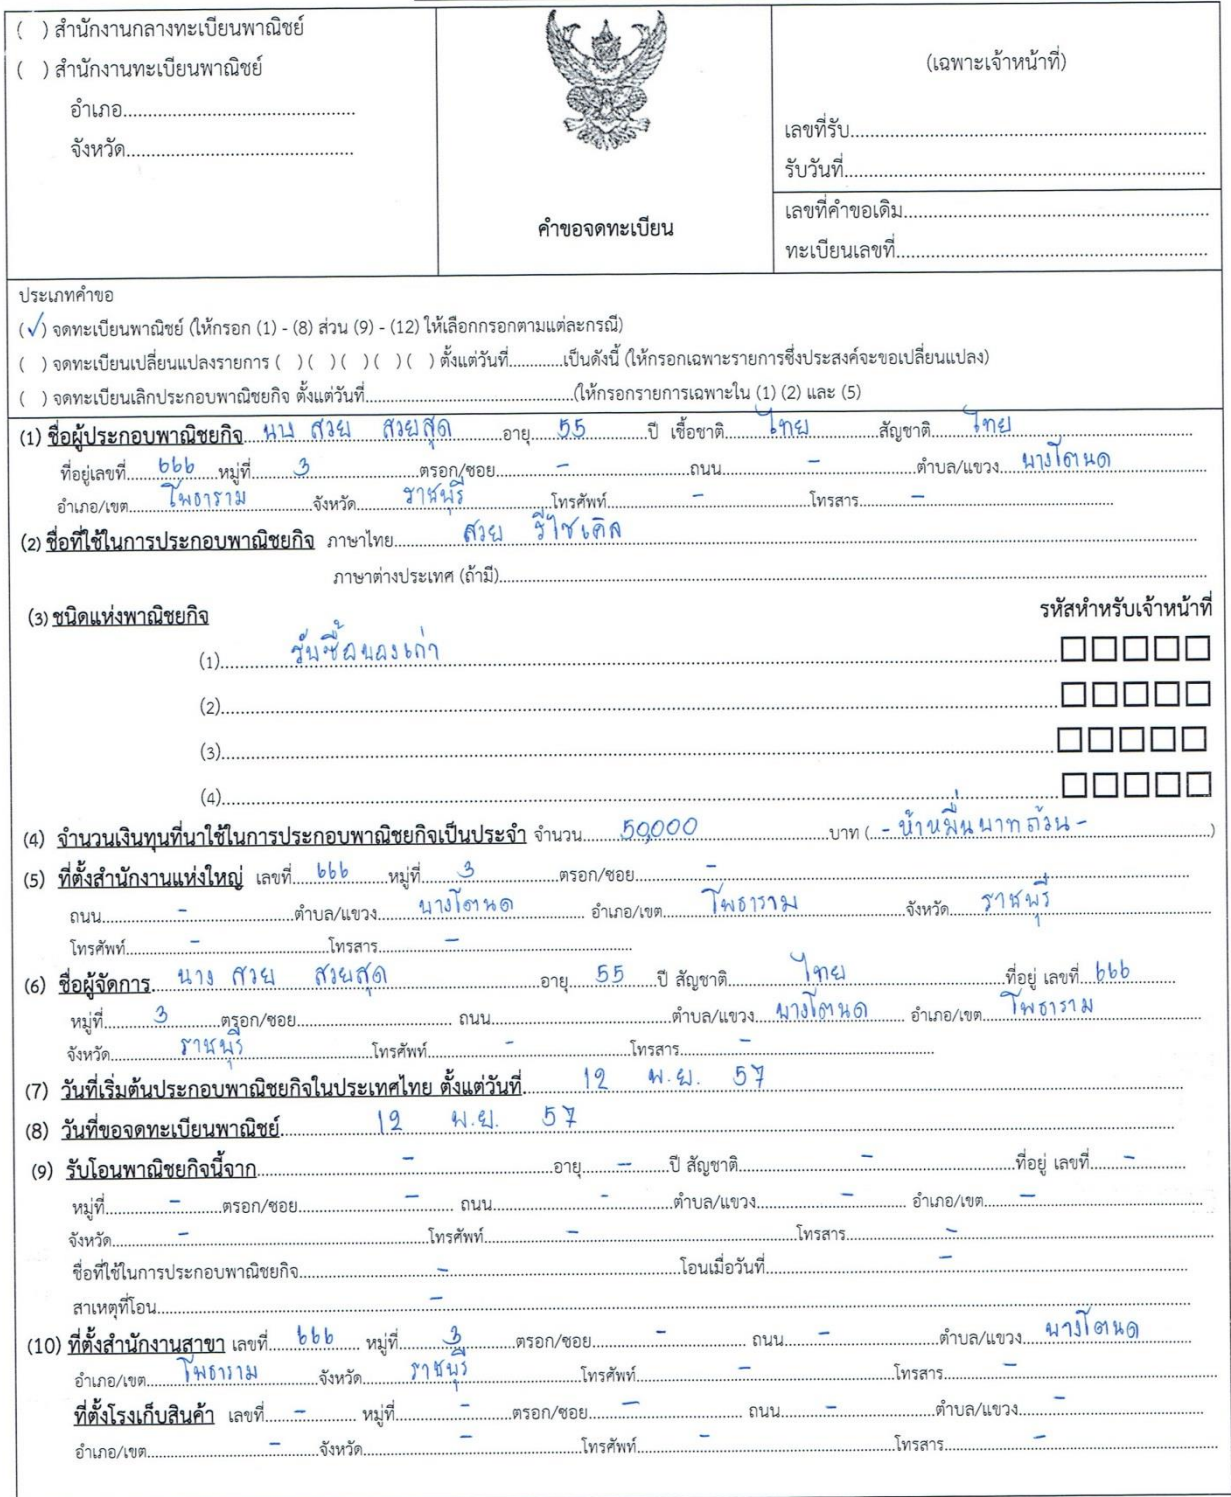 ( ) สำนักงานกลางทะเบียนพาณิชย์
( ) สำนักงานทะเบียนพาณิชย์
อำเภอ............................................
จังหวัด...........................................
คำขอจดทะเบียน
(เฉพาะเจ้าหน้าที่)
เลขที่รับ....................................
รับวันที่....................................
เลขที่คำขอเดิม....................................
ทะเบียนเลขที่....................................
ประเภทคำขอ
(✓) จดทะเบียนพาณิชย์ (ให้กรอก (1) - (8) ส่วน (9) - (12) ให้เลือกกรอกตามแต่ละกรณี)
( ) จดทะเบียนเปลี่ยนแปลงรายการ ( ) ( ) ( ) ( ) ตั้งแต่วันที่............เป็นดังนี้ (ให้กรอกเฉพาะรายการซึ่งประสงค์จะขอเปลี่ยนแปลง)
( ) จดทะเบียนเลิกประกอบพาณิชยกิจ ตั้งแต่วันที่....................................(ให้กรอกรายการเฉพาะใน (1) (2) และ (5)
(1) ชื่อผู้ประกอบพาณิชยกิจ สวย สวยสุด อายุ 55 ปี เชื้อชาติ ไทย สัญชาติ ไทย
ที่อยู่เลขที่ 666 หมู่ที่ 3 ตรอก/ซอย - ถนน - ตำบล/แขวง บางโตนด
อำเภอ/เขต โพธาราม จังหวัด ราชบุรี โทรศัพท์ - โทรสาร -
(2) ชื่อที่ใช้ในการประกอบพาณิชยกิจ ภาษาไทย สวย รีไซเคิล
ภาษาต่างประเทศ (ถ้ามี)....................................
(3) ชนิดแห่งพาณิชยกิจ รหัสหำหรับเจ้าหน้าที่
(1) รับซื้อของเก่า □□□□□
(2).................................... □□□□□
(3).................................... □□□□□
(4).................................... □□□□□
(4) จำนวนเงินทุนที่นาใช้ในการประกอบพาณิชยกิจเป็นประจำ จำนวน 50,000 บาท ( - ห้าหมื่นบาทถ้วน - )
(5) ที่ตั้งสำนักงานแห่งใหญ่ เลขที่ 666 หมู่ที่ 3 ตรอก/ซอย -
ถนน - ตำบล/แขวง บางโตนด อำเภอ/เขต โพธาราม จังหวัด ราชบุรี
โทรศัพท์ - โทรสาร -
(6) ชื่อผู้จัดการ นาง สวย สวยสุด อายุ 55 ปี สัญชาติ ไทย ที่อยู่ เลขที่ 666
หมู่ที่ 3 ตรอก/ซอย............ ถนน............ ตำบล/แขวง บางโตนด อำเภอ/เขต โพธาราม
จังหวัด ราชบุรี โทรศัพท์ - โทรสาร -
(7) วันที่เริ่มต้นประกอบพาณิชยกิจในประเทศไทย ตั้งแต่วันที่ 12 พ.ย. 57
(8) วันที่ขอจดทะเบียนพาณิชย์ 12 พ.ย. 57
(9) รับโอนพาณิชยกิจนี้จาก - อายุ - ปี สัญชาติ - ที่อยู่ เลขที่ -
หมู่ที่ - ตรอก/ซอย - ถนน - ตำบล/แขวง - อำเภอ/เขต -
จังหวัด - โทรศัพท์ - โทรสาร -
ชื่อที่ใช้ในการประกอบพาณิชยกิจ - โอนเมื่อวันที่ -
สาเหตุที่โอน -
(10) ที่ตั้งสำนักงานสาขา เลขที่ 666 หมู่ที่ 3 ตรอก/ซอย - ถนน - ตำบล/แขวง บางโตนด
อำเภอ/เขต โพธาราม จังหวัด ราชบุรี โทรศัพท์ - โทรสาร -
ที่ตั้งโรงเก็บสินค้า เลขที่ - หมู่ที่ - ตรอก/ซอย - ถนน - ตำบล/แขวง -
อำเภอ/เขต - จังหวัด - โทรศัพท์ - โทรสาร -